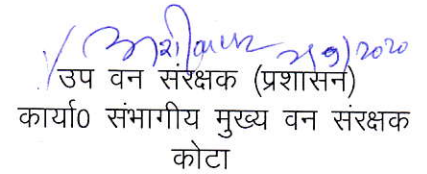 उप वन संरक्षक (प्रशासन)
कार्या0 संभागीय मुख्य वन संरक्षक
कोटा